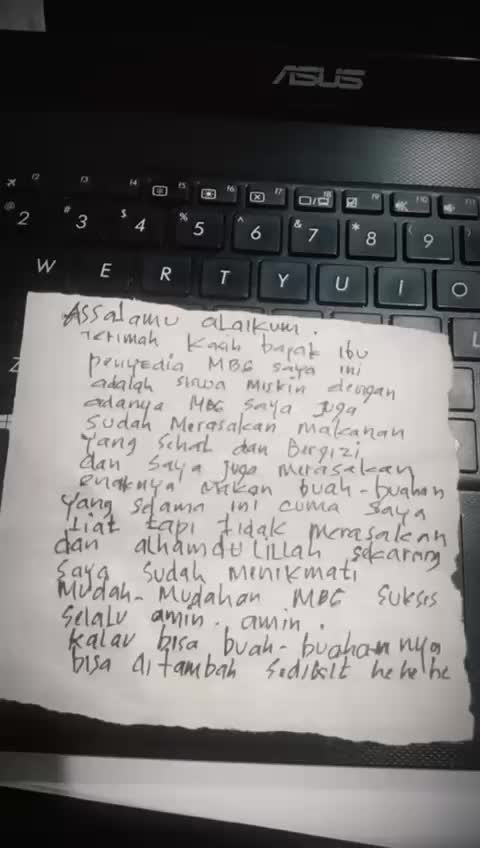 ASUS
f2 f3 f4 f5 f6 f7 f8 f9 f10 f11
@ 2 # 3 $ 4 % 5 ^ 6 & 7 * 8 ( 9
W E R T Y U I O
Assalamu alaikum.
Terimah Kasih bapak Ibu
penyedia MBG saya ini
adalah siswa miskin dengan
adanya MBG saya juga
sudah Merasakan makanan
yang sehat dan Bergizi
dan saya juga merasakan
enaknya makan buah-buahan
yang selama ini cuma saya
liat tapi tidak merasakan
dan alhamdulillah sekarang
saya sudah menikmati
Mudah-Mudahan MBG sukses
selalu amin. amin.
kalau bisa buah-buahannya
bisa di tambah sedikit hehehe